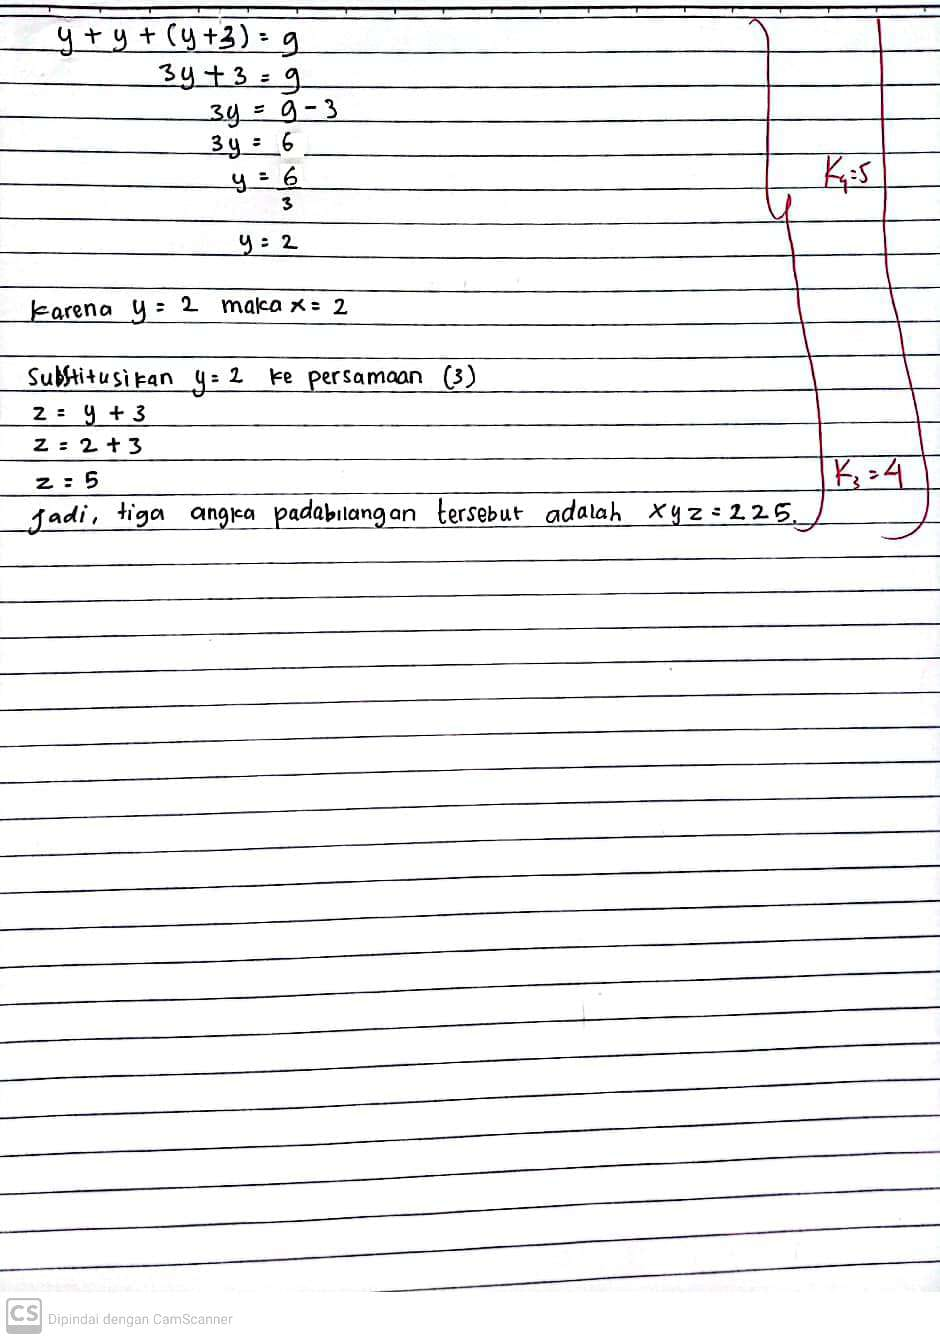 y + y + (y+3) = 9
3y + 3 = 9
3y = 9 - 3
3y = 6
y = 6
3
y = 2
Karena y = 2 maka x = 2
Substitusikan y = 2 ke persamaan (3)
z = y + 3
z = 2 + 3
z = 5
Jadi, tiga angka padabilangan tersebut adalah xyz = 225.
K4=5
K3=4
CS Dipindai dengan CamScanner